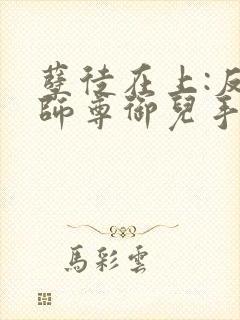 孽徒在上:反
師尊御兒手
馬彩雲